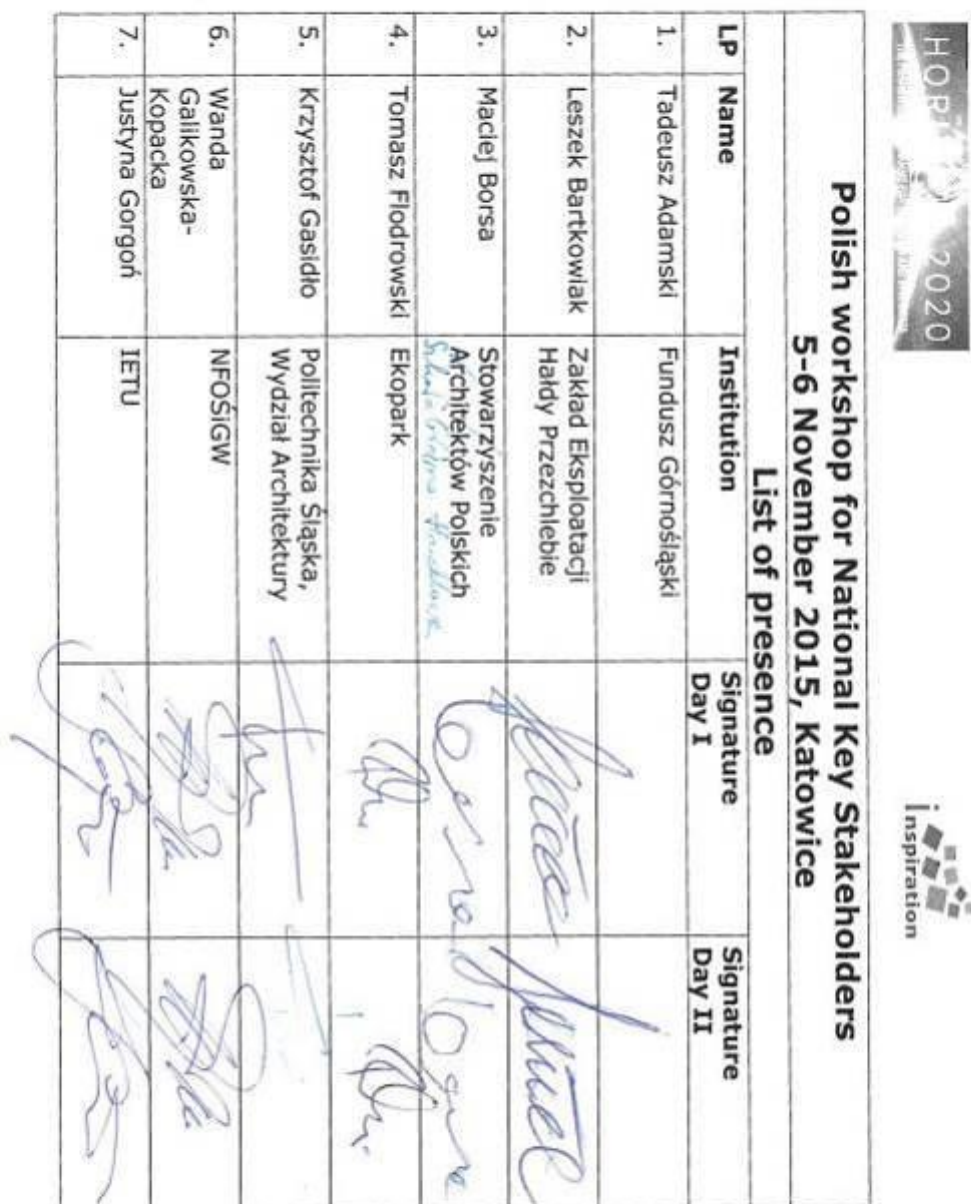 HORIZON 2020
inspiration
Polish workshop for National Key Stakeholders
5-6 November 2015, Katowice
List of presence
LP Name Institution Signature Day I Signature Day II
1. Tadeusz Adamski Fundusz Górnośląski
2. Leszek Bartkowiak Zakład Eksploatacji
Hałdy Przezchlebie
3. Maciej Borsa Stowarzyszenie
Architektów Polskich
4. Tomasz Flodrowski Ekopark
5. Krzysztof Gasidło Politechnika Śląska,
Wydział Architektury
6. Wanda NFOŚiGW
Galikowska-
Kopacka
7. Justyna Gorgoń IETU